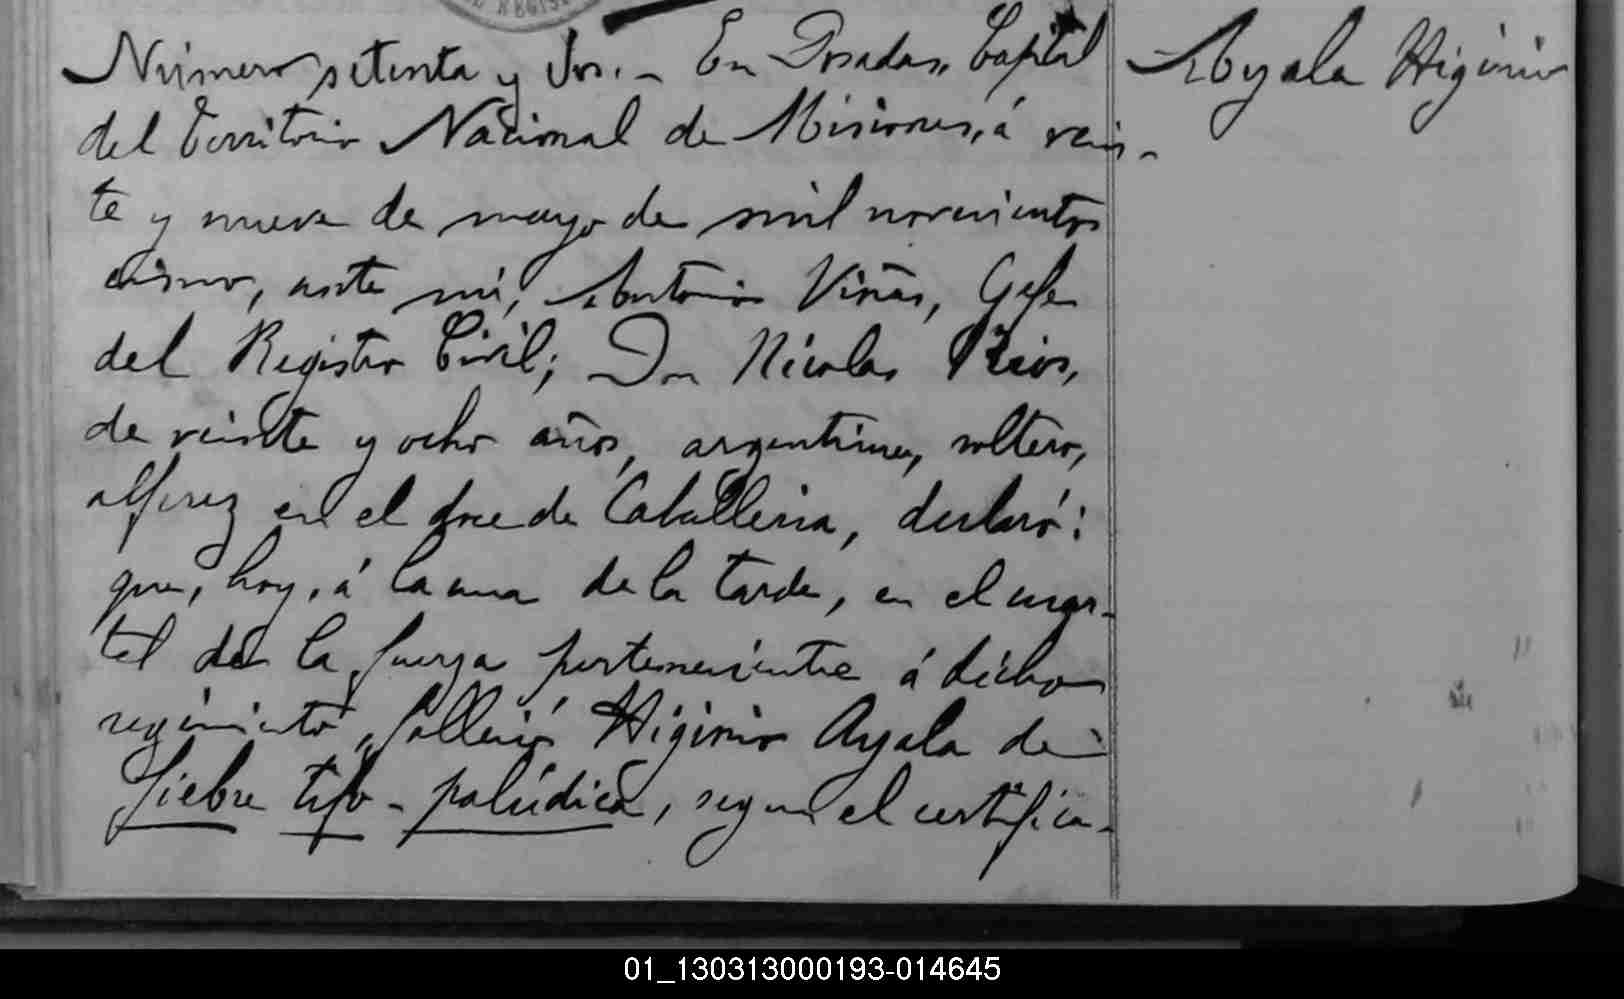 Número setenta y dos.- En Posadas, Capital
del Territorio Nacional de Misiones, á vein-
te y nueve de mayo de mil novecientos
cinco, ante mí, Antonio Viñas, Gefe
del Registro Civil; Don Nicolas Rios,
de veinte y ocho años, argentino, soltero,
alferez en el doce de Caballeria, declaró:
que, hoy, á la una de la tarde, en el cuar-
tel de la fuerza perteneciente á dicho
regimiento, falleció Higinio Ayala de
fiebre tifo-palúdica, segun el certifica-
Ayala Higinio
01_130313000193-014645